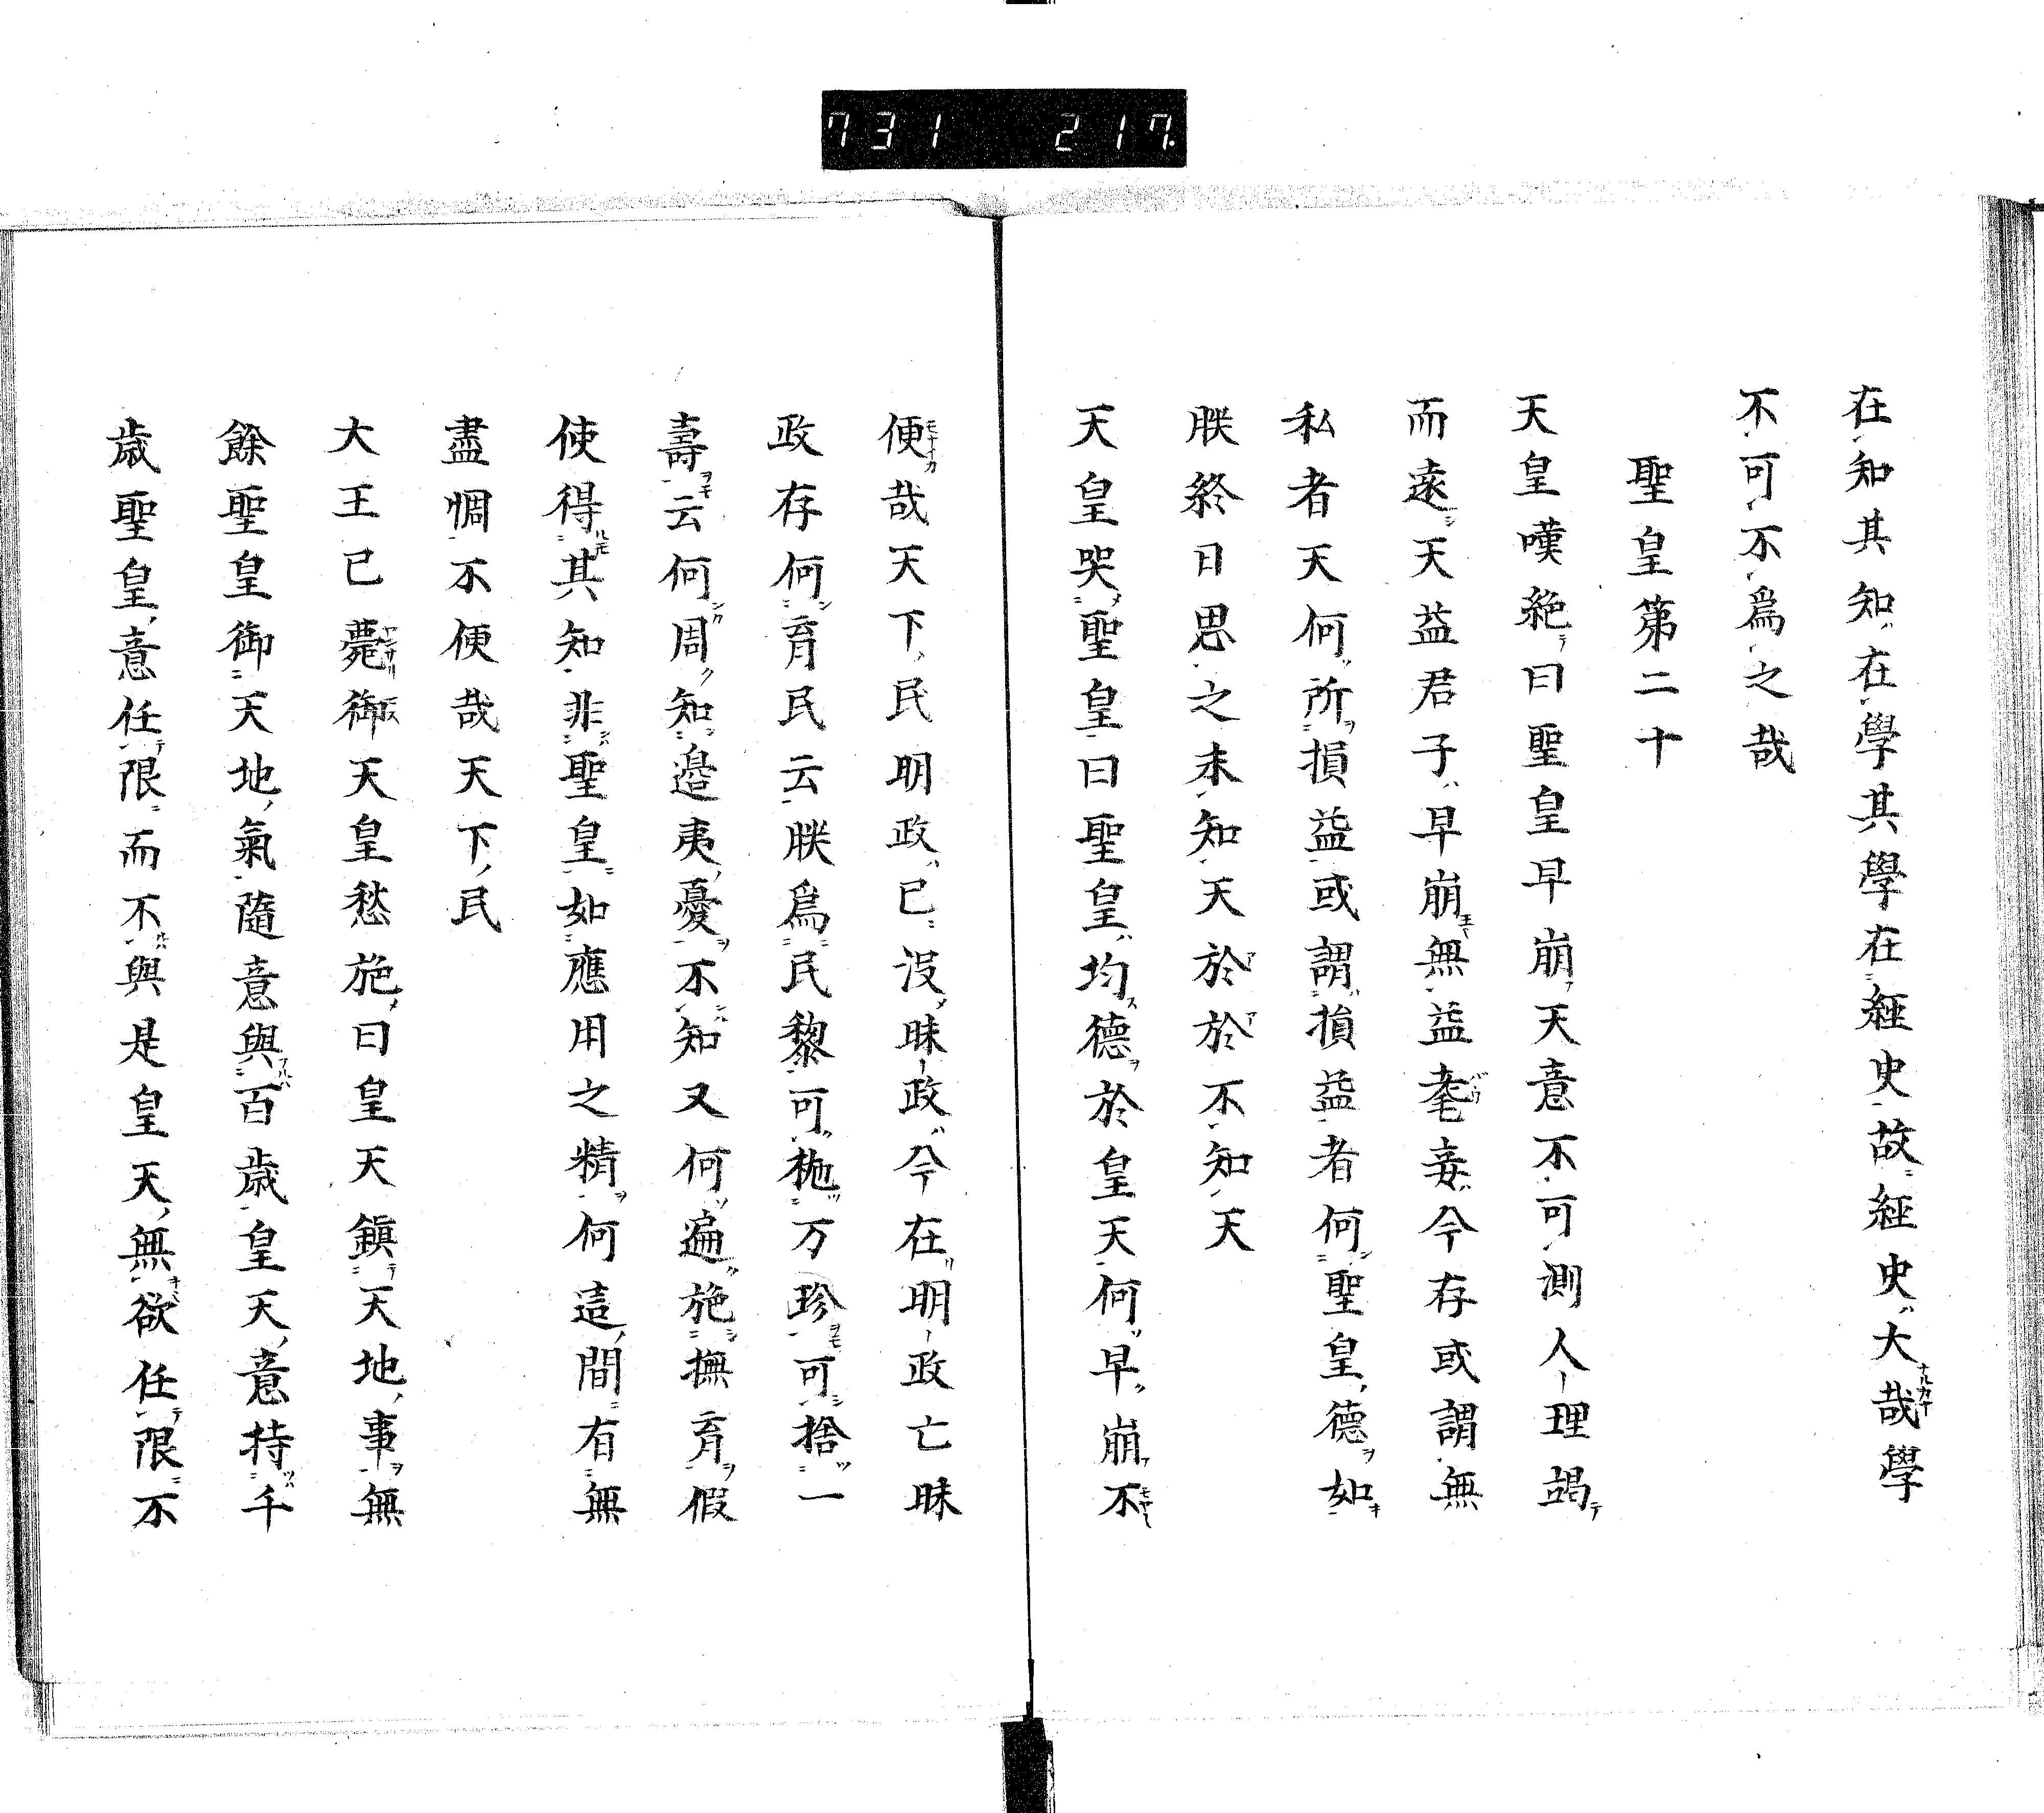 731 217.
在知其知在學其學在経史故経史大哉學
不可不爲之哉
聖皇第二十
天皇嘆絶曰聖皇早崩天意不可測人理竭
而遠天益君子早崩無益耄妄今存或謂無
私者天何所損益或謂損益者何聖皇德如
朕終日思之未知天於於不知天
天皇哭聖皇曰聖皇均德於皇天何早崩不
便哉天下民明政已沒昧政今在明政亡昧
政存何育民云朕爲民黎可拖万珍可捨一
壽云何周知邉夷憂不知又何遍施撫育假
使得其知非聖皇如應用之精何這間有無
盡惆不便哉天下民
大王已薨御天皇愁施曰皇天鎭天地事無
餘聖皇御天地氣隨意與百歳皇天意持千
歳聖皇意任限而不與是皇天無欲任限不